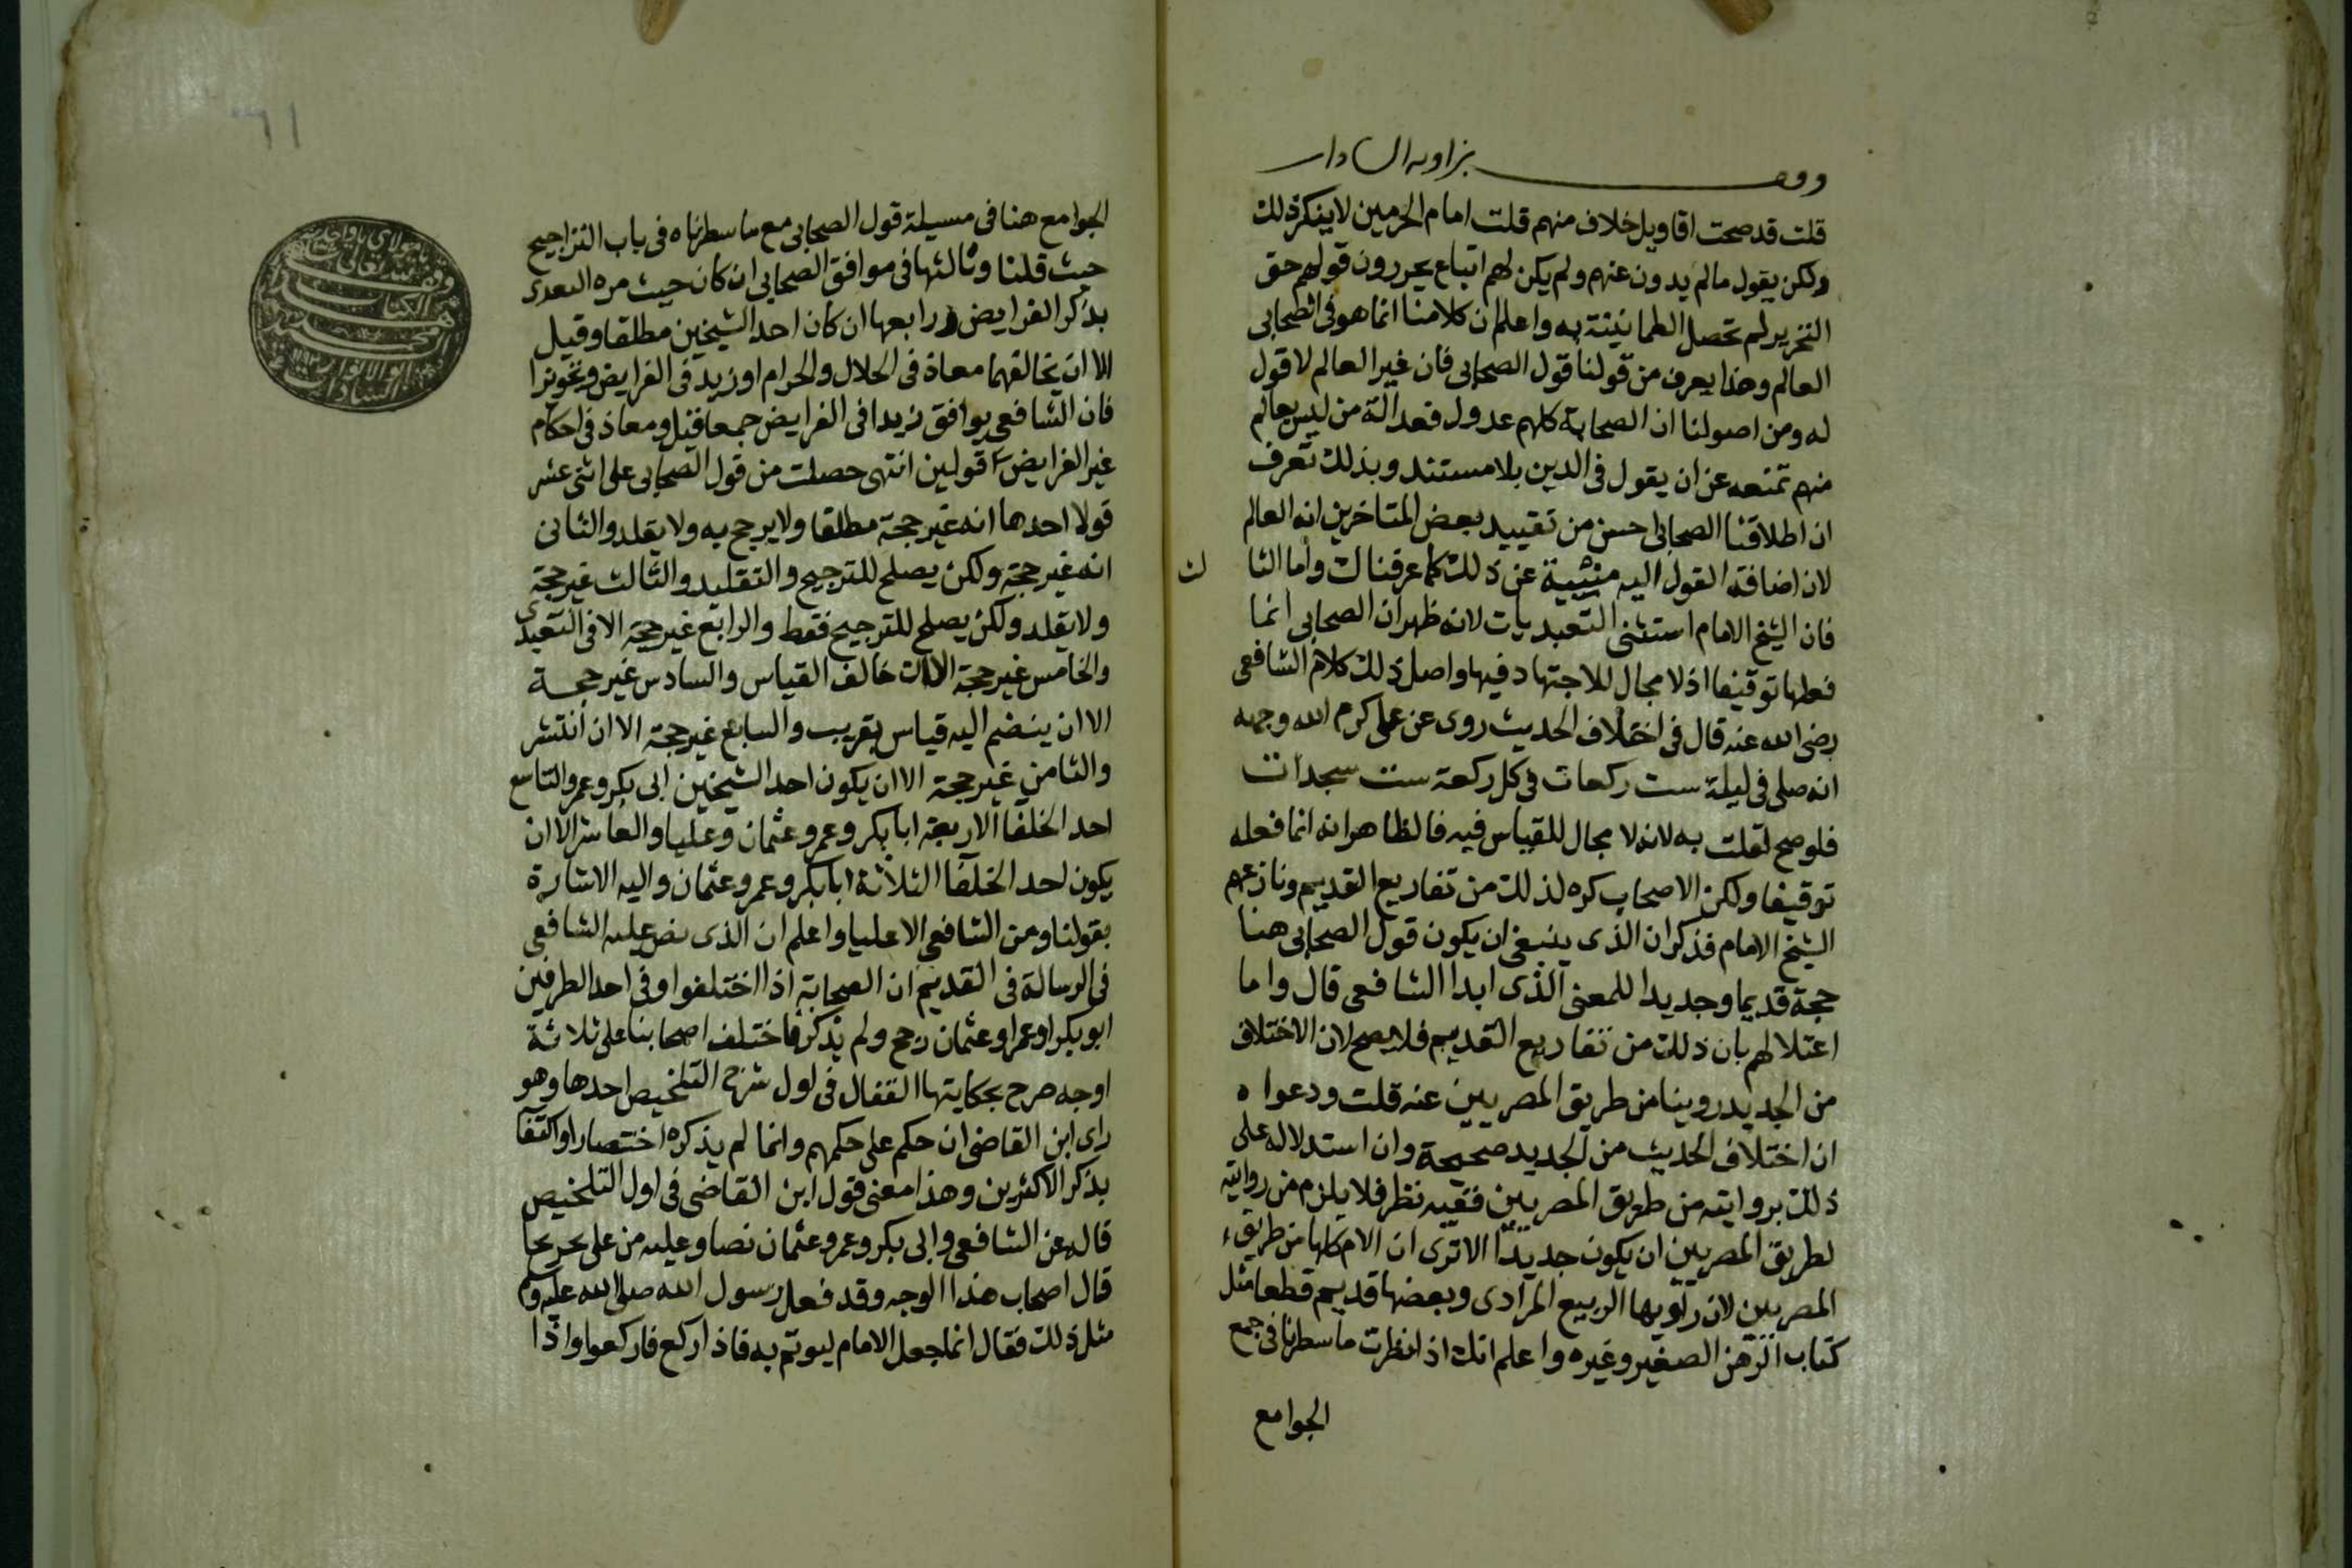 وقف بزاوية السادات
قلت قد صحت اقاويل خلاف منهم قلت امام الحرمين لا ينكر ذلك
ولكن يقول مالم يدون عنهم ولم يكن لهم اتباع يحررون قولهم حق
التحرير لم تحصل الطمانينة به واعلم ان كلامنا انما هو في الصحابى
العالم وهذا يعرف من قولنا قول الصحابى فان غير العالم لا قول
له ومن اصولنا ان الصحابة كلهم عدول فعدالة من ليس بعالم
منهم تمنعه عن ان يقول فى الدين بلا مستند وبذلك تعرف
ان اطلاقنا الصحابى احسن من تقييد بعض المتاخرين انه العالم
لان اضافة القول اليه منبئة عن ذلك كما عرفناك واما الثا لث
فان الشيخ الامام استثنى التعبديات لانه ظهر ان الصحابى انما
فعلها توقيفا اذ لا مجال للاجتهاد فيها واصل ذلك كلام الشافعى
رضى الله عنه قال فى اختلاف الحديث روى عن على كرم الله وجهه
انه صلى فى ليلة ست ركعات فى كل ركعة ست سجدات
فلو صح لقلت به لانه لا مجال للقياس فيه فالظاهر انه انما فعله
توقيفا ولكن الاصحاب كره لذلك من تفاريع القديم ونازعهم
الشيخ الامام فذكر ان الذى ينبغى ان يكون قول الصحابى هنا
حجة قديما وجديدا للمعنى الذى ابدا الشافعى قال واما
اعتلالهم بان ذلك من تفاريع القديم فلا يصح لان الاختلاف
من الجديد روينا من طريق المصريين عنه قلت ودعواه
ان اختلاف الحديث من الجديد صحيحة وان استدلاله على
ذلك بروايته من طريق المصريين ففيه نظر فلا يلزم من روايته
لطريق المصريين ان يكون جديدا الا ترى ان الام كلها من طريق
المصريين لان راويها الربيع المرادى وبعضها قديم قطعا مثل
كتاب الرهن الصغير وغيره واعلم انك اذا نظرت ما سطرنا فى جمع
الجوامع
الجوامع هنا فى مسيلة قول الصحابى مع ما سطرناه فى باب التراجيح
حيث قلنا وثالثها فى موافق الصحابى ان كان حيث مره
بذكر الفرايض ورابعها ان كان احد الشيخين مطلقا وقيل
الا ان يخالفهما معاذ فى الحلال والحرام او زيد فى الفرايض ونحوهما
فان الشافعى يوافق زيدا فى الفرايض ومعاذ فى احكام
غير الفرايض قولين انتهى حصلت من قول الصحابى على اثنى عشر
قولا احدها انه غير حجة مطلقا ولا يرجح به ولا يقلد والثانى
انه غير حجة ولكن يصلح للترجيح والتقليد والثالث غير حجة
ولا يقلد ولكن يصلح للترجيح فقط والرابع غير حجة الا فى التعبدى
والخامس غير حجة الا ان خالف القياس والسادس غير حجة
الا ان ينضم اليه قياس تقريب والسابع غير حجة الا ان انتشر
والثامن غير حجة الا ان يكون احد الشيخين ابى بكر وعمر والتاسع
احد الخلفا الاربعة ابا بكر وعمر وعثمان وعليا والعاشر الا ان
يكون احد الخلفا الثلاثة ابا بكر وعمر وعثمان واليه الاشارة
بقولنا ومن الشافعى الا عليا واعلم ان الذى نص عليه الشافعى
فى الرسالة فى القديم ان الصحابة اذا اختلفوا وفى احد الطرفين
ابو بكر او عمر او عثمان رجح ولم يذكر فاختلف اصحابنا على ثلاثة
اوجه صرح بحكايتها القفال فى اول شرح التلخيص احدها وهو
راى ابن القاضى ان حكم على حكمهم وانما لم يذكره اختصارا واكتفا
بذكر الاكثرين وهذا معنى قول ابن القاضى فى اول التلخيص
قاله عن الشافعى وابى بكر وعمر وعثمان نصا وعليه من على تخريجا
قال اصحاب هذا الوجه وقد فعل رسول الله صلى الله عليه وسلم
مثل ذلك فقال انما جعل الامام ليوتم به فاذا ركع فاركعوا واذا